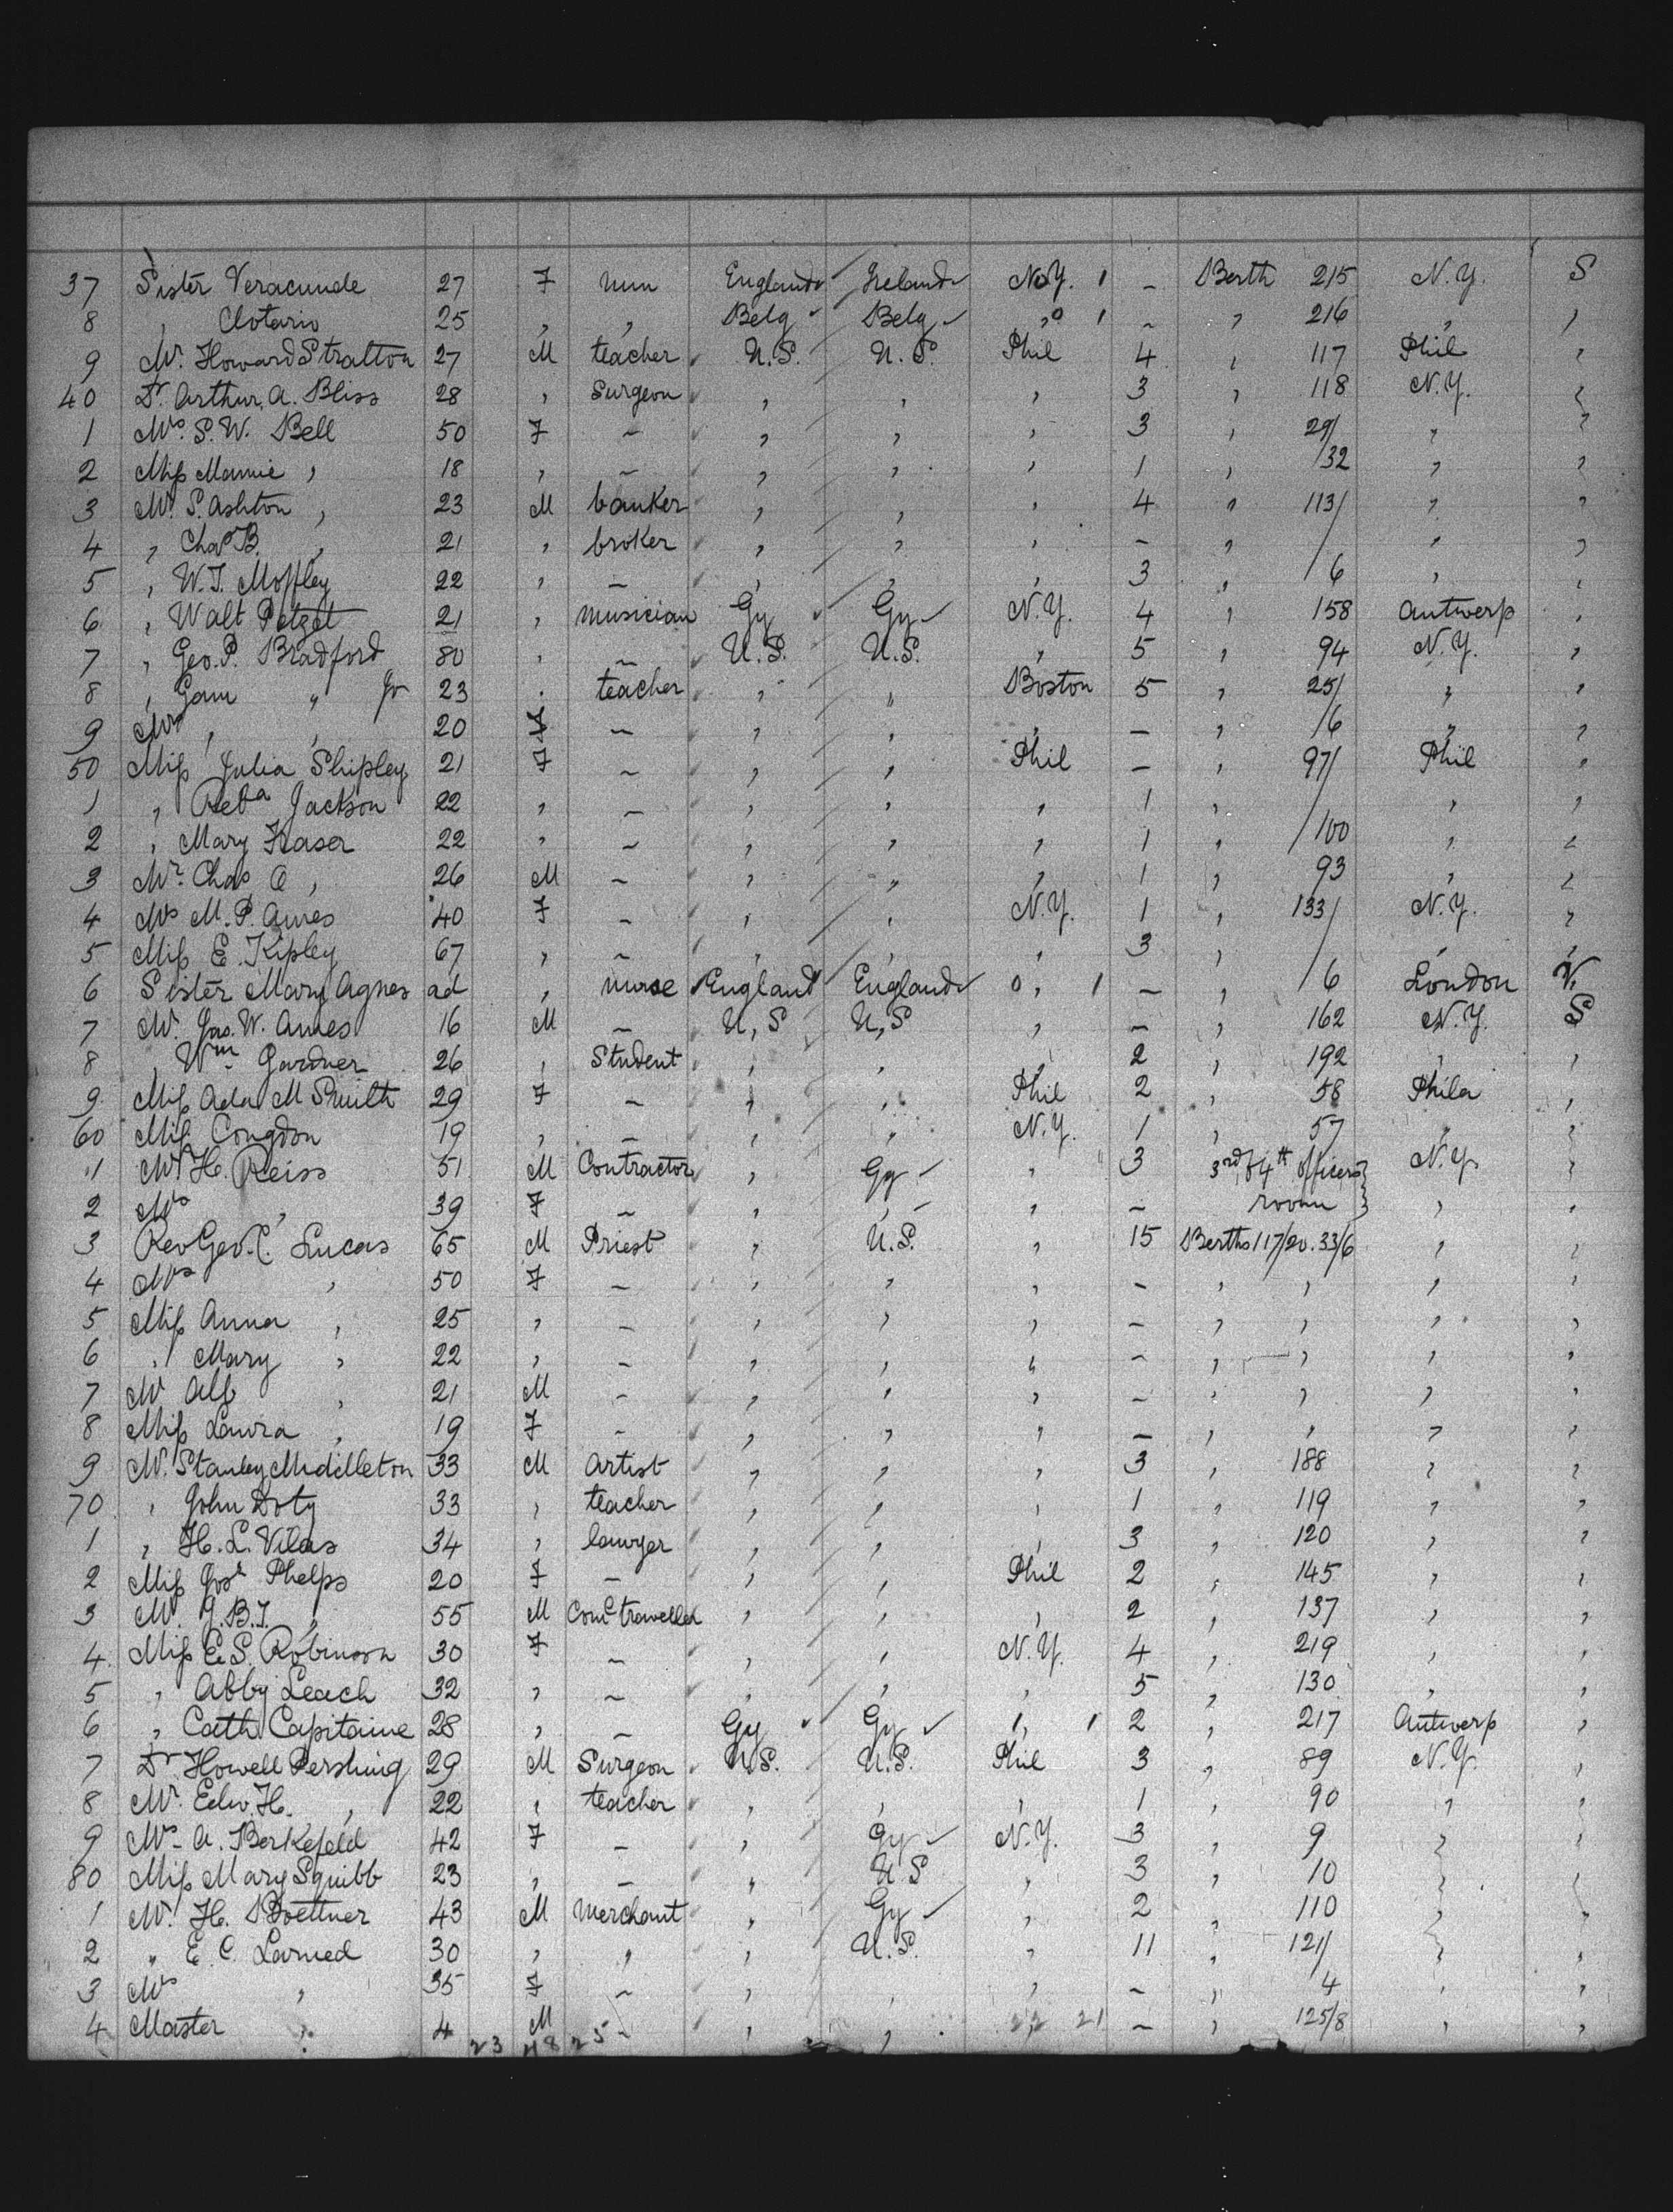 37 Sister Veracunde 27 F nun England Ireland N.Y. 1 – Berth 215 N.Y. S
8 , Clotario 25 , , Belg Belg ,0 1 – , 216 , ,
9 Mr. Howard Stratton 27 M teacher U.S. U.S. Phil 4 , 117 Phil ,
40 Dr. Arthur A. Bliss 28 , Surgeon , , , 3 , 118 N.Y. ,
1 Mrs. S. W. Bell 50 F – , , , 3 , 29/ , ,
2 Miss Mamie , 18 , – , , , 1 , /32 , ,
3 Mr. S. Ashton , 23 M banker , , , 4 " 113/ , ,
4 , Chas B. , 21 , broker , , , – , / , ,
5 , W. T. 22 , – , , , 3 , /6 , ,
6 , Walt Petzet 21 , musician Gy Gy N.Y. 4 , 158 Antwerp ,
7 , Geo. P. Bradford 80 , – U.S. U.S. , 5 , 94 N.Y. ,
8 , Gam " Jr 23 , teacher , " Boston 5 , 25/ , ,
9 Mrs , , 20 F – , , , – , /6 , ,
50 Miss Julia Shipley 21 F – , , Phil – , 97/ Phil ,
1 , Reba Jackson 22 , – , , , 1 , / , ,
2 , Mary Fraser 22 , – , , , 1 , /100 , ,
3 Mr. Chas O , 26 M – , " , 1 , 93 , ,
4 Mrs M. P. Ames 40 F – , , N.Y. 1 , 133/ N.Y. ,
5 Miss E. Kipley 67 , – , , , 3 , / , ,
6 Sister Mary Agnes ad , nurse England England 0, 1 – , /6 London V.
7 Mr. Jas. W. Ames 16 M – U,S U,S , – , 162 N.Y. S
8 , Wm Gardner 26 , Student , , , 2 , 192 , ,
9 Miss Ada M Smith 29 F – , , Phil 2 , 58 Phila ,
60 Miss Congdon 19 , – , , N.Y. 1 , 57 , ,
1 Mr H. Reiss 51 M Contractor , Gy , 3 3rd & 4th Officers N.Y. ,
2 Mrs , 39 F – , , , – room , ,
3 Rev Geo. C. Lucas 65 M Priest , U.S. , 15 Berths 117/20. 33/6 , ,
4 Mrs , 50 F – , , , – , , , ,
5 Miss Anna , 25 , – , , , – , , , ,
6 , Mary , 22 , – , , , – , , , ,
7 Mr Alf , 21 M – , , , – , , , ,
8 Miss Laura , 19 F – , , " – , , , ,
9 Mr. Stanley Middleton 33 M Artist , , , 3 , 188 , ,
70 , John Doty 33 , teacher , , , 1 , 119 , ,
1 , H. L. Vilas 34 , lawyer , , , 3 , 120 , ,
2 Miss Phelps 20 F – , , Phil 2 , 145 , ,
3 Mr. J. B. T. , 55 M Coml traveller , , , 2 , 137 , ,
4 Miss E. S. Robinson 30 F – , , N.Y. 4 , 219 , ,
5 , Abby Leach 32 , – , , , 5 , 130 , ,
6 , Cath Capitaine 28 , – Gy Gy , 1 2 , 217 Antwerp ,
7 Dr. Howell Pershing 29 M Surgeon U.S. U.S. Phil 3 , 89 N.Y. ,
8 Mr. Edw. H. , 22 , teacher , , , 1 , 90 , ,
9 Mrs. A. Berkefeld 42 F – , Gy N.Y. 3 , 9 , ,
80 Miss Mary Squibb 23 , – , U S , 3 , 10 , ,
1 Mr. H. Boettner 43 M Merchant , Gy , 2 , 110 , ,
2 " E. C. Larned 30 , , , U.S. , 11 , 121/ , ,
3 Mrs , 35 F – , , , – , 4 , ,
4 Master , 4 M – , , , – , 125/8 , ,
23 48 25 22 21